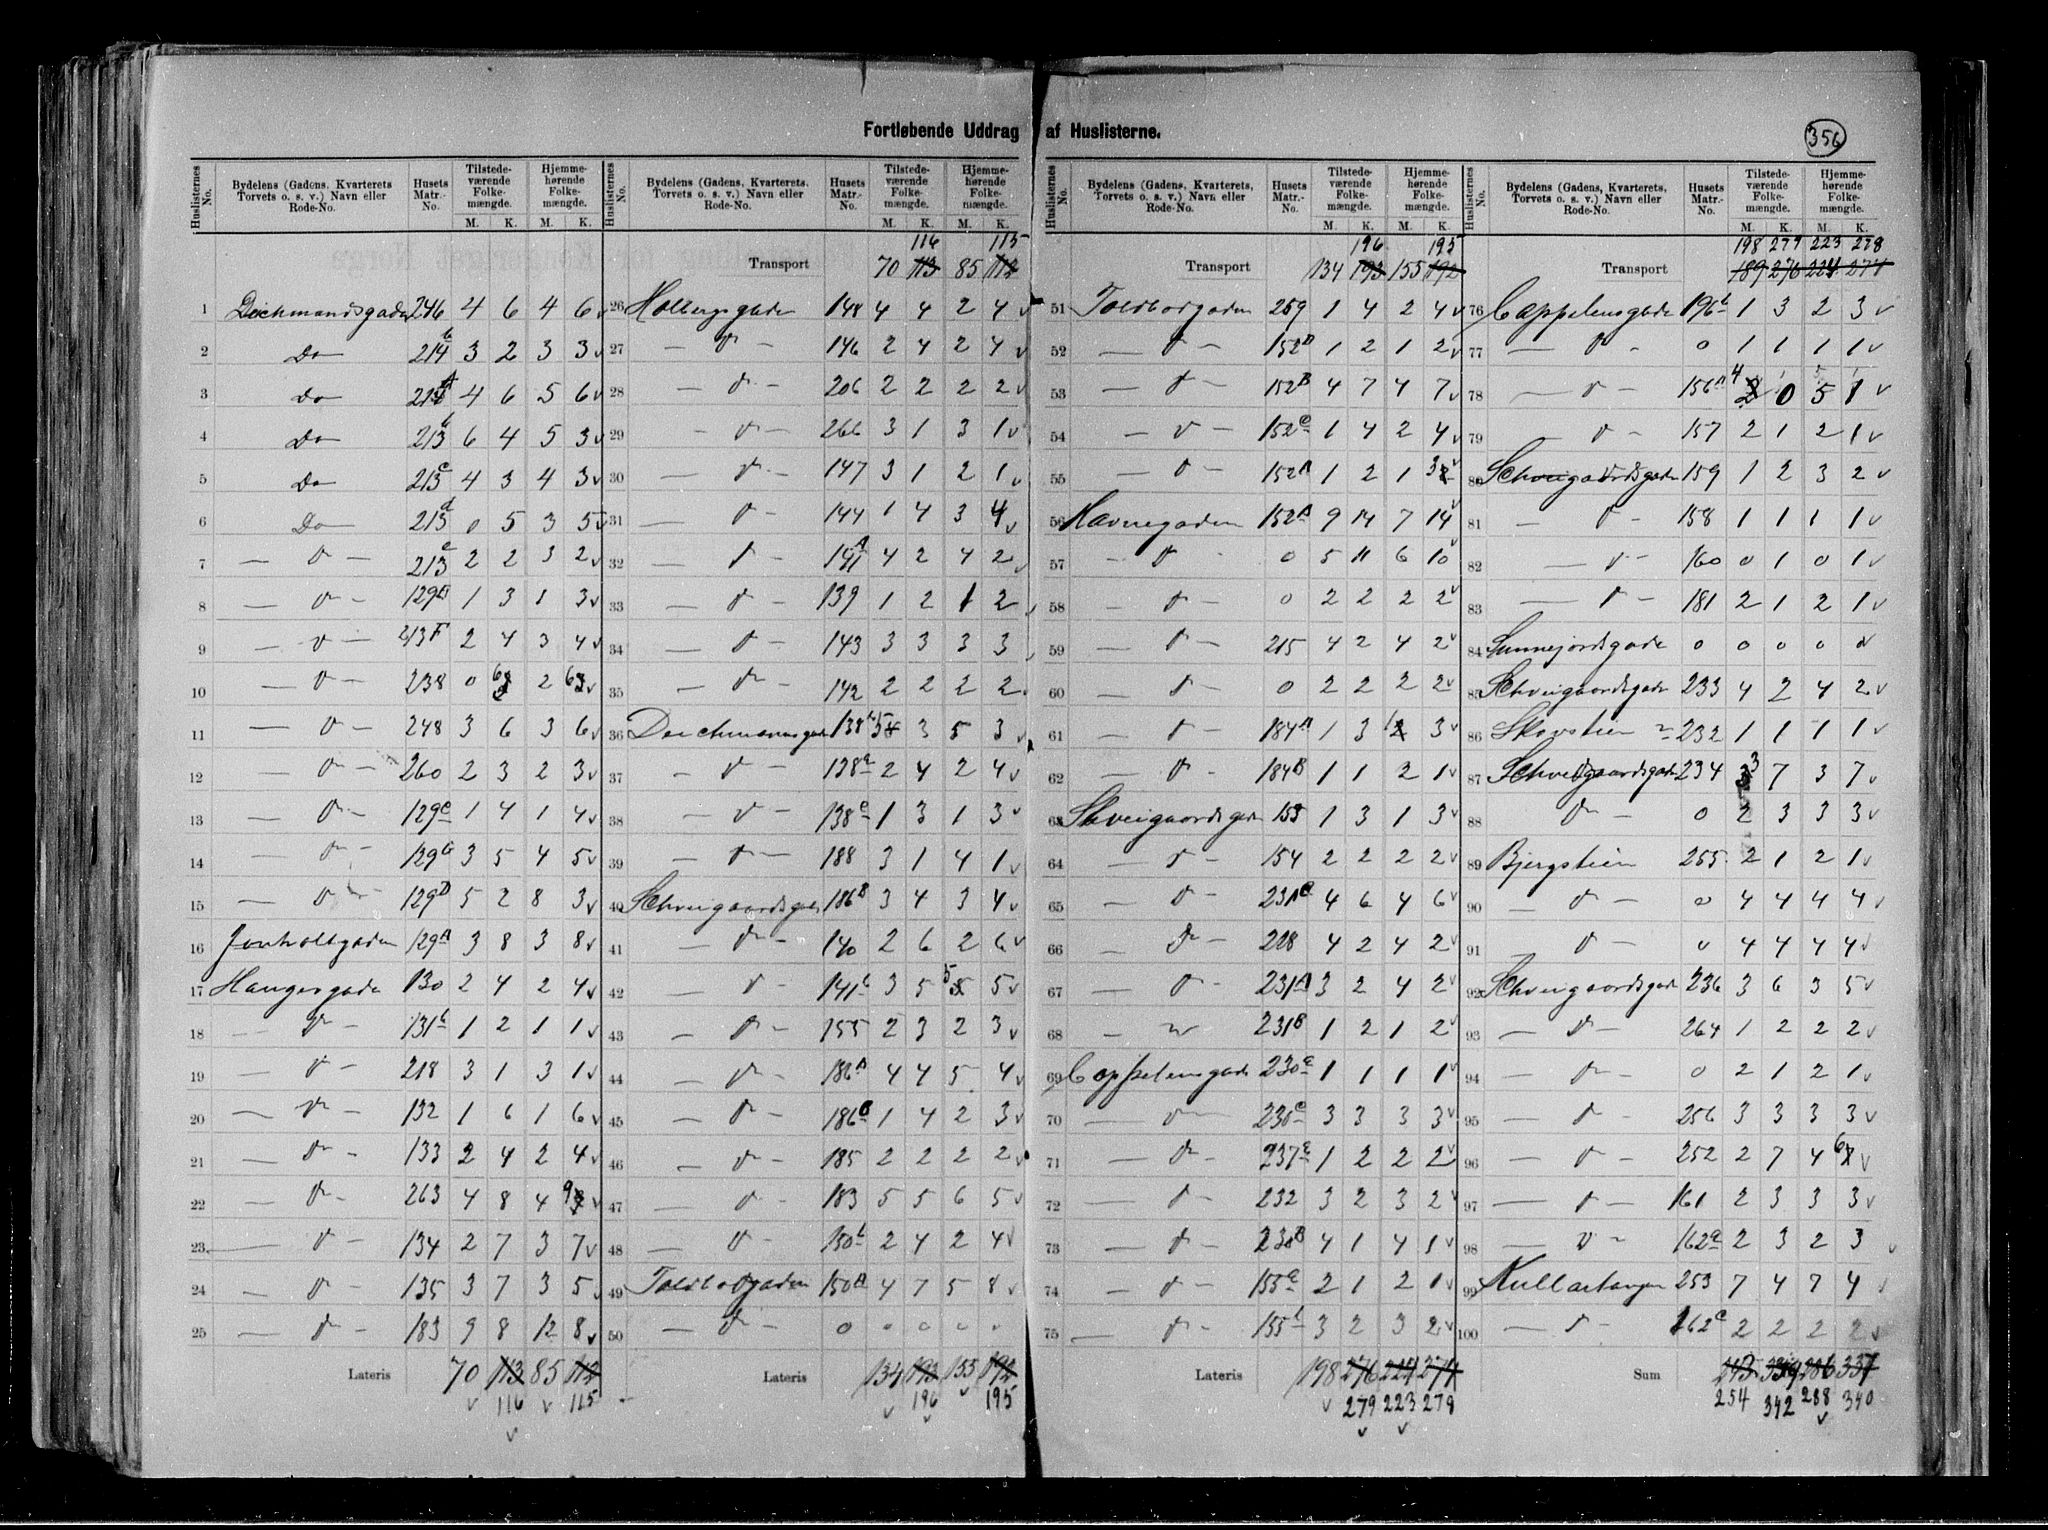 Fortløbende Uddrag af Huslisterne.
356
Huslisternes No. | Bydelens (Gadens, Kvarterets, Torvets o. s. v.) Navn eller Rode-No. | Husets Matr.-No. | Tilstede-værende Folke-mængde. M. K. | Hjemme-hørende Folke-mængde. M. K.
1 Deichmandsgaden 246 4 6 4 6
2 Do 214b 3 2 3 3
3 Do 214A 4 6 5 6
4 Do 213b 6 4 5 3
5 Do 213c 4 3 4 3
6 Do 213d 0 5 3 5
7 — D — 213e 2 2 3 2
8 — D — 129 1 3 1 3
9 — D — 213F 2 4 3 4
10 — D — 238 0 6 2 6
11 — D — 248 3 6 3 6
12 — D — 260 2 3 2 3
13 — D — 129c 1 4 1 4
14 — D — 129b 3 5 4 5
15 — D — 129D 5 2 8 3
16 129A 3 8 3 8
17 Haugesgade 130 2 4 2 4
18 — D — 131b 1 2 1 1
19 — D — 218 3 1 3 1
20 — D — 132 1 6 1 6
21 — D — 133 2 4 2 4
22 — D — 263 4 8 4 9
23 — D — 134 2 7 3 7
24 — D — 135 3 7 3 5
25 — D — 183 9 8 12 8
Lateris 70 113 85 112
116 115
Huslisternes No. | Bydelens (Gadens, Kvarterets, Torvets o. s. v.) Navn eller Rode-No. | Husets Matr.-No. | Tilstede-værende Folke-mængde. M. K. | Hjemme-hørende Folke-mængde. M. K.
116 115
Transport 70 113 85 112
26 Holbergsgaden 148 4 4 2 4
27 — D — 146 2 4 2 4
28 — D — 206 2 2 2 2
29 — D — 266 3 1 3 1
30 — D — 147 3 1 2 1
31 — D — 144 1 4 3 4
32 — D — 191A 4 2 4 2
33 — D — 139 1 2 1 2
34 — D — 143 3 3 3 3
35 — D — 142 2 2 2 2
36 Deichmansgade 138b 5 3 5 3
37 — D — 138a 2 4 2 4
38 — D — 138c 1 3 1 3
39 — D — 188 3 1 4 1
40 Schveigaardsgade 186B 3 4 3 4
41 — D — 140 2 6 2 6
42 — D — 141b 3 5 5 5
43 — D — 155 2 3 2 3
44 — D — 186A 4 4 5 4
45 — D — 186C 1 4 2 3
46 — D — 185 2 2 2 2
47 — D — 183 5 5 6 5
48 — D — 150b 2 4 2 4
49 Toldbodgaden 150A 4 7 5 8
50 — D — 0 0 0 0 0
Lateris 134 193 155 192
196 195
Huslisternes No. | Bydelens (Gadens, Kvarterets, Torvets o. s. v.) Navn eller Rode-No. | Husets Matr.-No. | Tilstede-værende Folke-mængde. M. K. | Hjemme-hørende Folke-mængde. M. K.
196 195
Transport 134 193 155 192
51 Toldbodgaden 259 1 4 2 4
52 — D — 152D 1 2 1 2
53 — D — 152B 4 7 4 7
54 — D — 152C 1 4 2 4
55 — D — 152A 1 2 1 3
56 Havnegaden 152A 9 14 7 14
57 — D — 0 5 11 6 10
58 — D — 0 2 2 2 2
59 — D — 215 4 2 4 2
60 — D — 0 2 2 2 2
61 — D — 184A 1 3 1 3
62 — D — 184B 1 1 2 1
63 Schveigaardsgade 153 1 3 1 3
64 — D — 154 2 2 2 2
65 — D — 231C 4 6 4 6
66 — D — 228 4 2 4 2
67 — D — 231A 3 2 4 2
68 — D — 231B 1 2 1 2
69 Cappelensgade 230c 1 1 1 1
70 — D — 230c 3 3 3 3
71 — D — 237c 1 2 2 2
72 — D — 232 3 2 3 2
73 — D — 230B 4 1 4 1
74 — D — 155a 2 1 2 1
75 — D — 155b 3 2 3 2
Lateris 198 276 224 274
279 223 278
Huslisternes No. | Bydelens (Gadens, Kvarterets, Torvets o. s. v.) Navn eller Rode-No. | Husets Matr.-No. | Tilstede-værende Folke-mængde. M. K. | Hjemme-hørende Folke-mængde. M. K.
198 279 223 278
Transport 189 276 224 274
76 Cappelensgade 196b 1 3 2 3
77 — D — 0 1 1 1 1
78 — D — 156A 4 0 5 1
79 — D — 157 2 1 2 1
80 Schveigaardsgade 159 1 2 3 2
81 — D — 158 1 1 1 1
82 — D — 160 0 1 0 1
83 — D — 181 2 1 2 1
84 Sunnejordsgade 0 0 0 0 0
85 Schveigaardsgade 233 4 2 4 2
86 Skovstien 232 1 1 1 1
87 Schveigaardsgade 234 3 7 3 7
88 D — 0 2 3 3 3
89 Bjergstien 255 2 1 2 1
90 — D — 0 4 4 4 4
91 — D — 0 4 4 4 4
92 Schveigaardsgade 236 3 6 3 5
93 — D — 264 1 2 2 2
94 — D — 0 2 1 2 1
95 — D — 256 3 3 3 3
96 — D — 252 2 7 4 6
97 — D — 161 2 3 3 3
98 — D — 162a 2 3 2 3
99 Kullartangen 253 7 4 7 4
100 — D — 162c 2 2 2 2
Sum 243 339 286 337
254 342 288 340